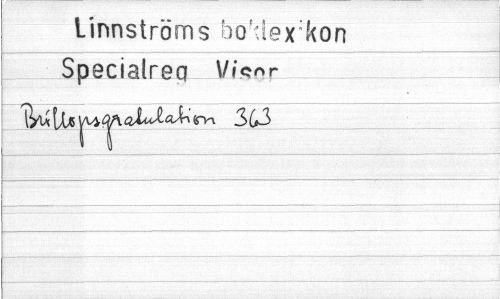 Linnströms boklexikon
Specialreg Visor
Bröllopsgratulation 363